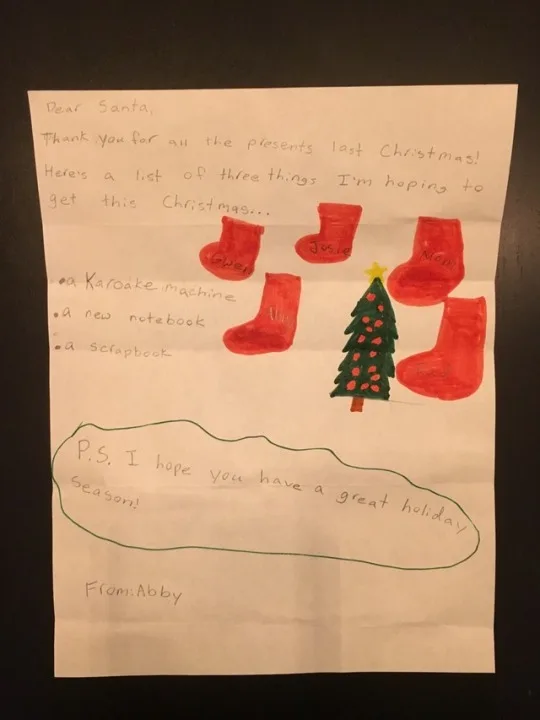 Dear Santa,
Thank you for all the presents last Christmas!
Here's a list of three things I'm hoping to
get this Christmas...
Gwen
Josie
Mom
• a Karoake machine
• a new notebook
• a scrapbook
P.S. I hope you have a great holiday
season!
From: Abby